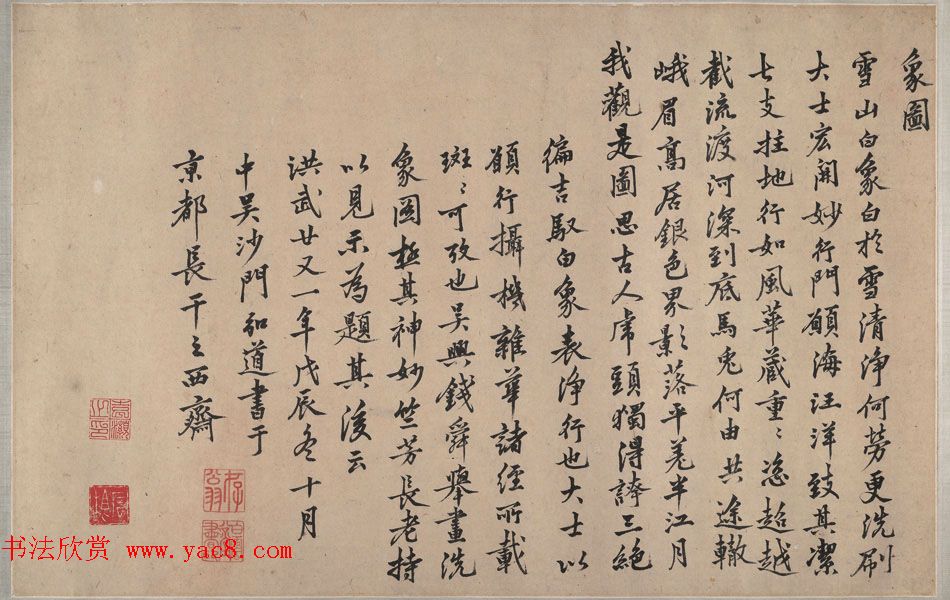 象圖
雪山白象白於雪清淨何勞更洗刷
大士宏開妙行門願海汪洋致其潔
七支拄地行如風華藏重〻恣超越
截流渡河深到底馬兎何由共途轍
峨眉高居銀色界影落平羌半江月
我觀是圖思古人虎頭獨得誇三絕
徧吉馭白象表淨行也大士以
願行攝機雜華諸經所載
斑〻可攷也吳興錢舜舉畫洗
象圖極其神妙竺芳長老持
以見示為題其後云
洪武廿又一年戊辰冬十月
中吳沙門知道書于
京都長干之西齋
书法欣赏 www.yac8.com